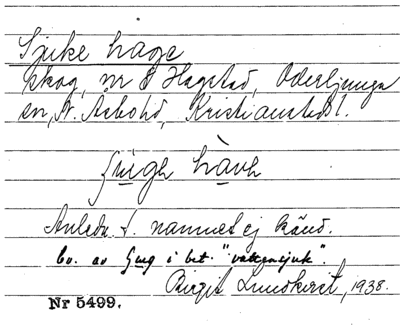 Sjuke hage
skog, nr 8 Hagstad, Oderljunga
sn, N. Åsbohd, Kristianstadsl.
hàvh
Anledn. t. namnet ej känd.
Ev. av sjug i bet. "vattensjuk".
Birgit Lundkvist, 1938.
Nr 5499.